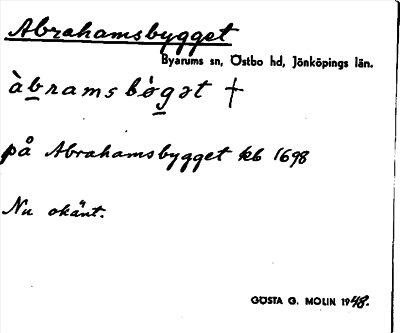 Abrahamsbygget
Byarums sn, Östbo hd, Jönköpings län.
àbramsbø̀gət †
på Abrahamsbygget kb 1698
Nu okänt.
GÖSTA G. MOLIN 1948.